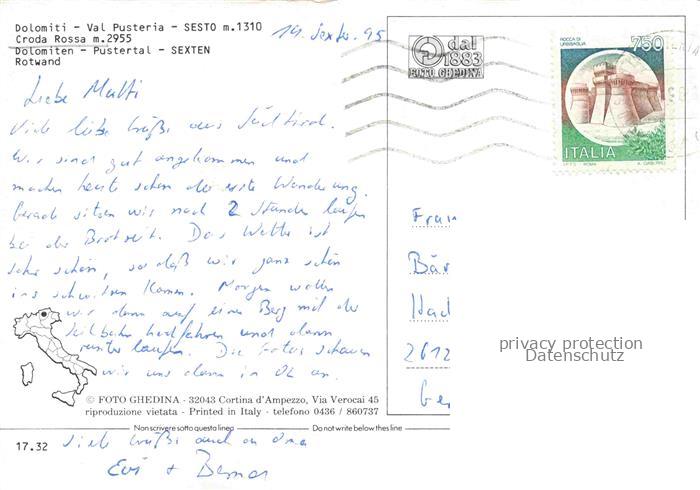 Dolomiti - Val Pusteria - SESTO m.1310
Croda Rossa m.2955
Dolomiten - Pustertal - SEXTEN
Rotwand
19. Septer. 95
dal
1883
FOTO GHEDINA
ROCCA DI
URBISAGLIA
750
ITALIA
Liebe Mutti
Viele liebe Grüße aus Südtirol.
Wir sind gut angekommen und
machen heute schon die erste Wanderung.
Gerade sitzen wir nach 2 Stunden laufen
bei der Brotzeit. Das Wetter ist
sehr schön, so daß wir ganz schön
ins schwitzen kamen. Morgen wollen
wir dann auf einen Berg mit der
Seilbahn hochfahren und dann
runter laufen. Die Fotos schauen
wir uns dann in OL an.
Frau
Bär
Had
2612
Ger
privacy protection
Datenschutz
© FOTO GHEDINA - 32043 Cortina d'Ampezzo, Via Verocai 45
riproduzione vietata - Printed in Italy - telefono 0436 / 860737
Non scrivere sotto questa linea Do not write below this line
17.32
Viele Grüße auch an Oma
Evi +